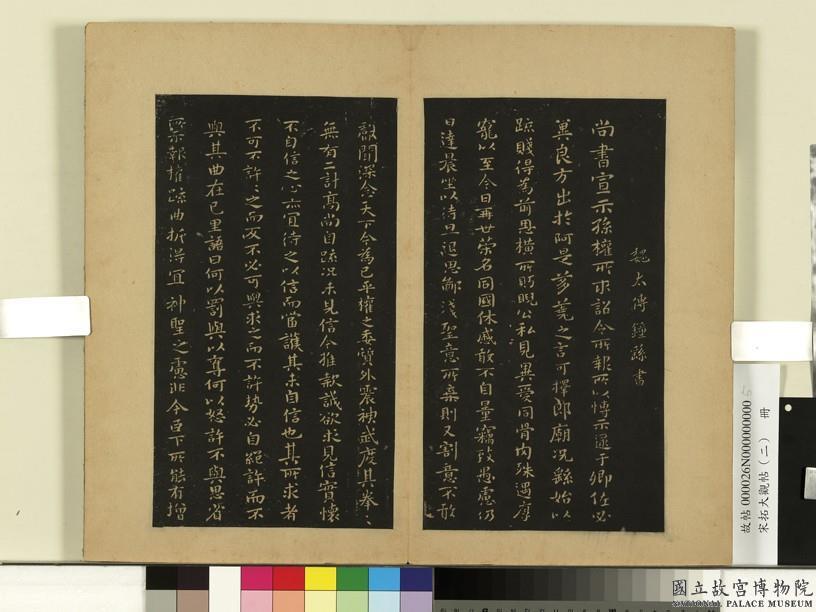 魏太傅鍾繇書
尚書宣示孫權所求詔令所報所以博示逮于卿佐必
冀良方出於阿是芻蕘之言可擇郎廟況繇始以
疏賤得為前恩橫所盱睨公私見異愛同骨肉殊遇厚
寵以至今日再世榮名同國休慼敢不自量竊致愚慮仍
日達晨坐以待旦退思鄙淺聖意所棄則又割意不敢
獻聞深念天下今為已平權之委質外震神武度其拳〻
無有二計高尚自疏況未見信今推款誠欲求見信實懷
不自信之心亦宜待之以信而當護其未自信也其所求者
不可不許〻之而反不必可與求之而不許勢必自絕許而不
與其曲在己里語曰何以罰與以奪何以怒許不與思省
所示報權疏曲折得宜神聖之慮非今臣下所能有增
故帖 000026N000000000 5 冊
宋拓大觀帖（二）
國立故宮博物院
NATIONAL PALACE MUSEUM